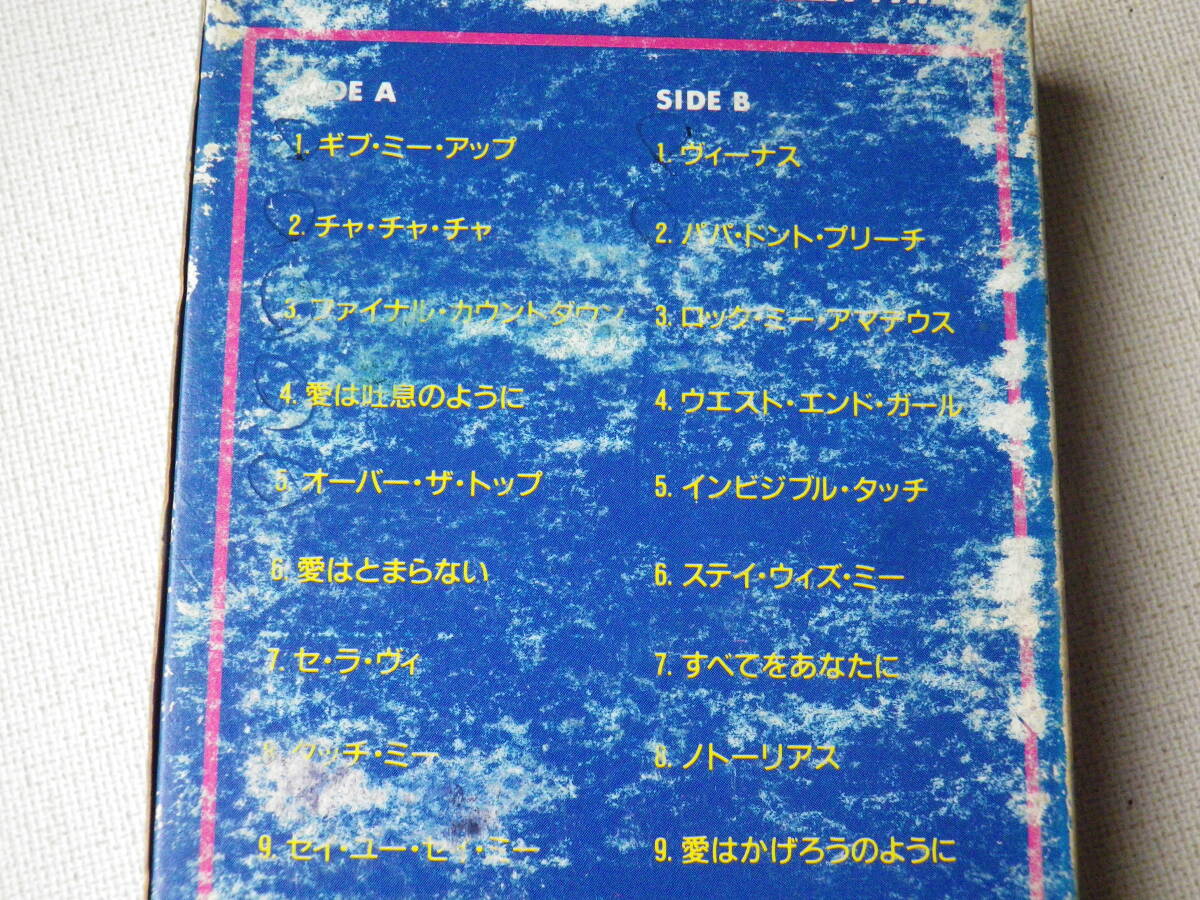 SIDE A
1. ギブ・ミー・アップ
2. チャ・チャ・チャ
3. ファイナル・カウントダウン
4. 愛は吐息のように
5. オーバー・ザ・トップ
6. 愛はとまらない
7. セ・ラ・ヴィ
8. タッチ・ミー
9. セイ・ユー・セイ・ミー
SIDE B
1. ヴィーナス
2. パパ・ドント・プリーチ
3. ロック・ミー・アマデウス
4. ウエスト・エンド・ガール
5. インビジブル・タッチ
6. ステイ・ウィズ・ミー
7. すべてをあなたに
8. ノトーリアス
9. 愛はかげろうのように